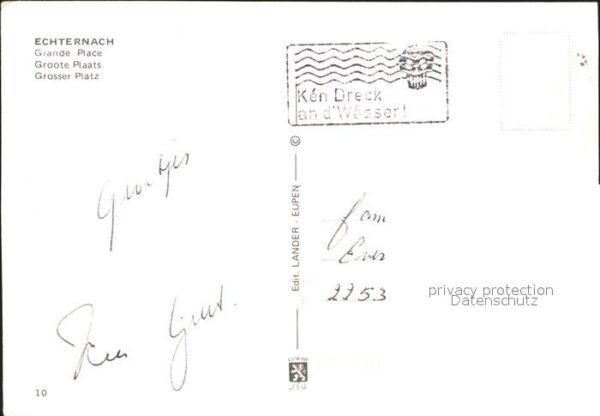 ECHTERNACH
Grande Place
Groote Plaats
Grosser Platz
Kén Dreck
an d'Wâsser!
©
Edit. LANDER - EUPEN
Groetjes
fam
2253
privacy protection
Datenschutz
10